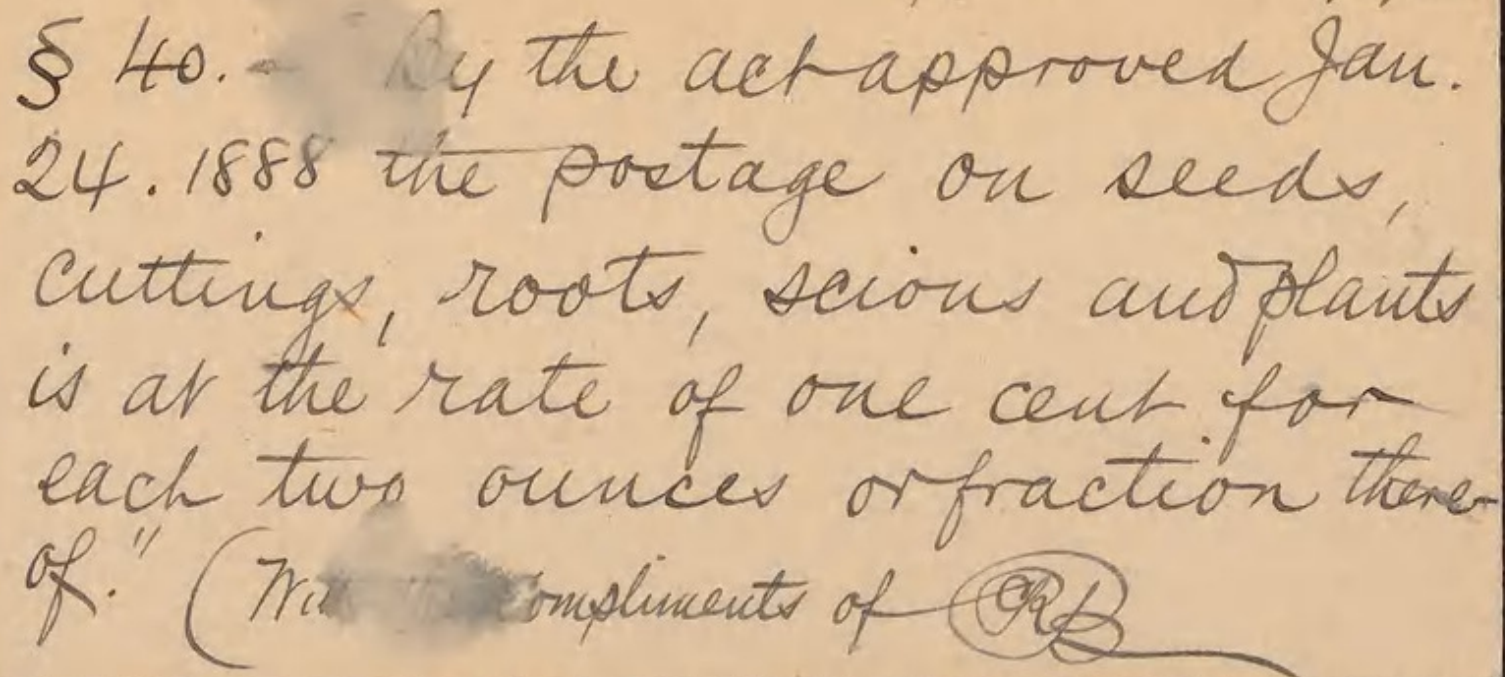 § 40. - By the act approved Jan.
24. 1888 the postage on seeds,
cuttings, roots, scions and plants
is at the rate of one cent for
each two ounces or fraction there-
of." (With compliments of